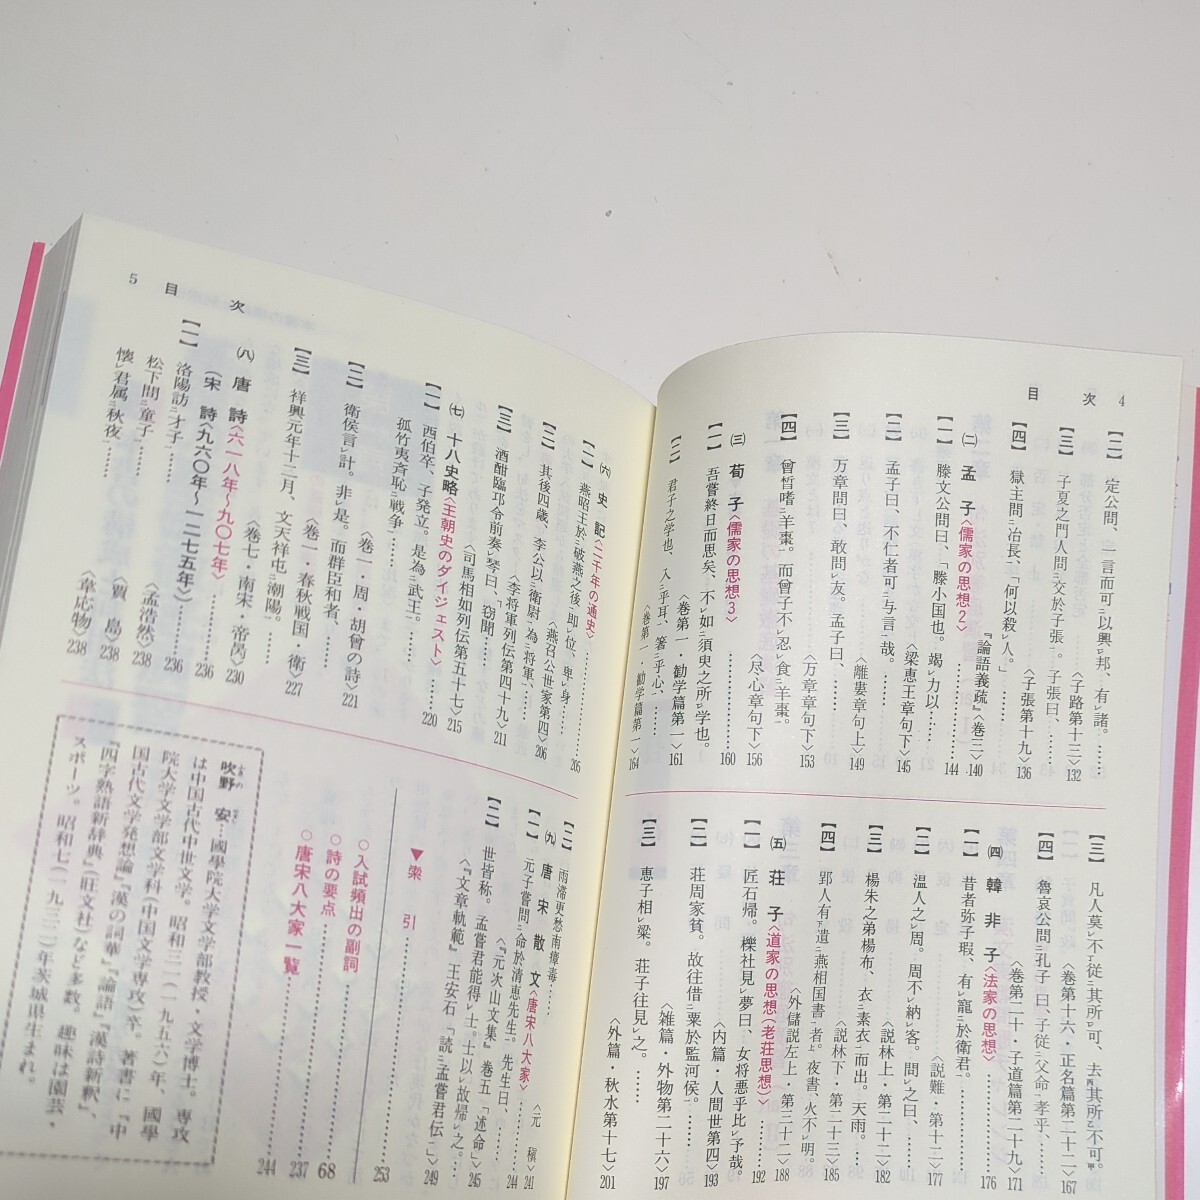 4
目次
【二】 定公問、一言而可以興邦、有諸。……〈子路第十三〉132
【三】 子夏之門人問交於子張。子張曰、……〈子張第十九〉136
【四】 獄主問冶長、「何以殺人。」……『論語義疏』〈巻三〉140
㈡ 孟子〈儒家の思想2〉……144
【一】 滕文公問曰、「滕小国也。竭力以……〈梁恵王章句下〉145
【二】 孟子曰、不仁者可与言哉。……〈離婁章句上〉149
【三】 万章問曰、敢問友。孟子曰、……〈万章章句下〉153
【四】 曽皙嗜羊棗。而曽子不忍食羊棗。〈尽心章句下〉156
㈢ 荀子〈儒家の思想3〉……160
【一】 吾嘗終日而思矣、不如須臾之所学也。〈巻第一・勧学篇第一〉161
【二】 君子之学也、入乎耳、箸乎心、……〈巻第一・勧学篇第一〉164
【三】 凡人莫不従其所可、去其所不可。〈巻第十六・正名篇第二十二〉167
【四】 魯哀公問孔子曰、子従父命孝乎、……〈巻第二十・子道篇第二十九〉171
㈣ 韓非子〈法家の思想〉……176
【一】 昔者弥子瑕、有寵於衛君。……〈説難・第十二〉177
【二】 温人之周。周不納客。問之曰、……〈説林上・第二十二〉
【三】 楊朱之弟楊布、衣素衣而出。天雨。……〈説林下・第二十三〉185
【四】 郢人有遺燕相国書者。夜書、火不明。〈外儲説左上・第三十二〉188
㈤ 荘子〈道家の思想(老荘思想)〉……192
【一】 匠石帰。櫟社見夢曰、女将悪乎比予哉。〈内篇・人間世第四〉193
【二】 荘周家貧。故往借粟於監河侯。……〈雑篇・外物第二十六〉197
【三】 恵子相梁。荘子往見之。……〈外篇・秋水第十七〉201
目次
5
㈥ 史記〈二千年の通史〉……205
【一】 燕昭王於破燕之後即位、卑身……〈燕召公世家第四〉206
【二】 其後四歳、李公以衛尉為将軍、……〈李将軍列伝第四十九〉211
【三】 酒酣臨邛令前奏琴曰、「窃聞……〈司馬相如列伝第五十七〉215
㈦ 十八史略〈王朝史のダイジェスト〉……220
【一】 西伯卒、子発立。是為武王。……
孤竹夷斉恥戦争……〈巻一・周・胡曽の詩〉221
【二】 衛侯言計。非是。而群臣和者、……〈巻一・春秋戦国・衛〉227
【三】 祥興元年十二月、文天祥屯潮陽。……〈巻七・南宋・帝昺〉230
㈧ 唐詩〈六一八年〜九〇七年〉……236
(宋詩〈九六〇年〜一二七五年〉)……236
【一】 洛陽訪才子……〈孟浩然〉238
松下問童子……〈賈島〉238
懐君属秋夜……〈韋応物〉238
【二】 雨滞更愁南瘴毒……〈元稹〉241
㈨ 唐宋散文〈唐宋八大家〉……244
【一】 元子嘗問命於清恵先生。先生曰、……〈『元次山文集』巻五「述命」〉245
【二】 世皆称。孟嘗君能得士。士以故帰之。……〈『文章軌範』王安石「読孟嘗君伝」〉249
▼索引……253
○入試頻出の副詞……68
○詩の要点……237
○唐宋八大家一覧……244
吹野 安…國學院大学文学部教授・文学博士。専攻
は中国古代中世文学。昭和三一(一九五六)年、國學
院大学文学部文学科(中国文学専攻)卒。著書に『中
国古代文学発想論』『漢の詞華』『論語』『漢詩新釈』、
『四字熟語新辞典』(旺文社)など多数。趣味は園芸・
スポーツ。昭和七(一九三二)年茨城県生まれ。